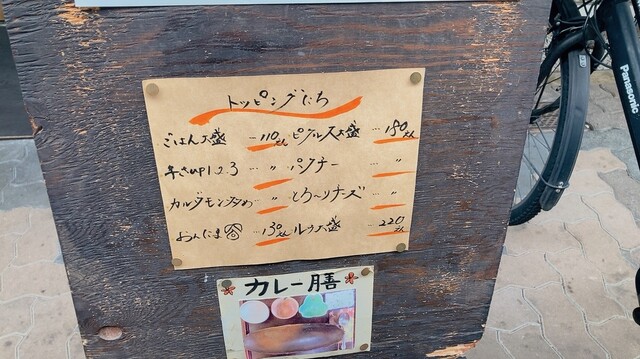 トッピングたち
ごはん大盛 … 110えん ピクルス大盛 … 180えん
辛さup1.2.3 … 〃 パクチー … 〃
カルダモン多め … 〃 とろ〜りチーズ … 〃
おんたま … 130えん ルウ大盛 … 220えん
カレー膳
Panasonic